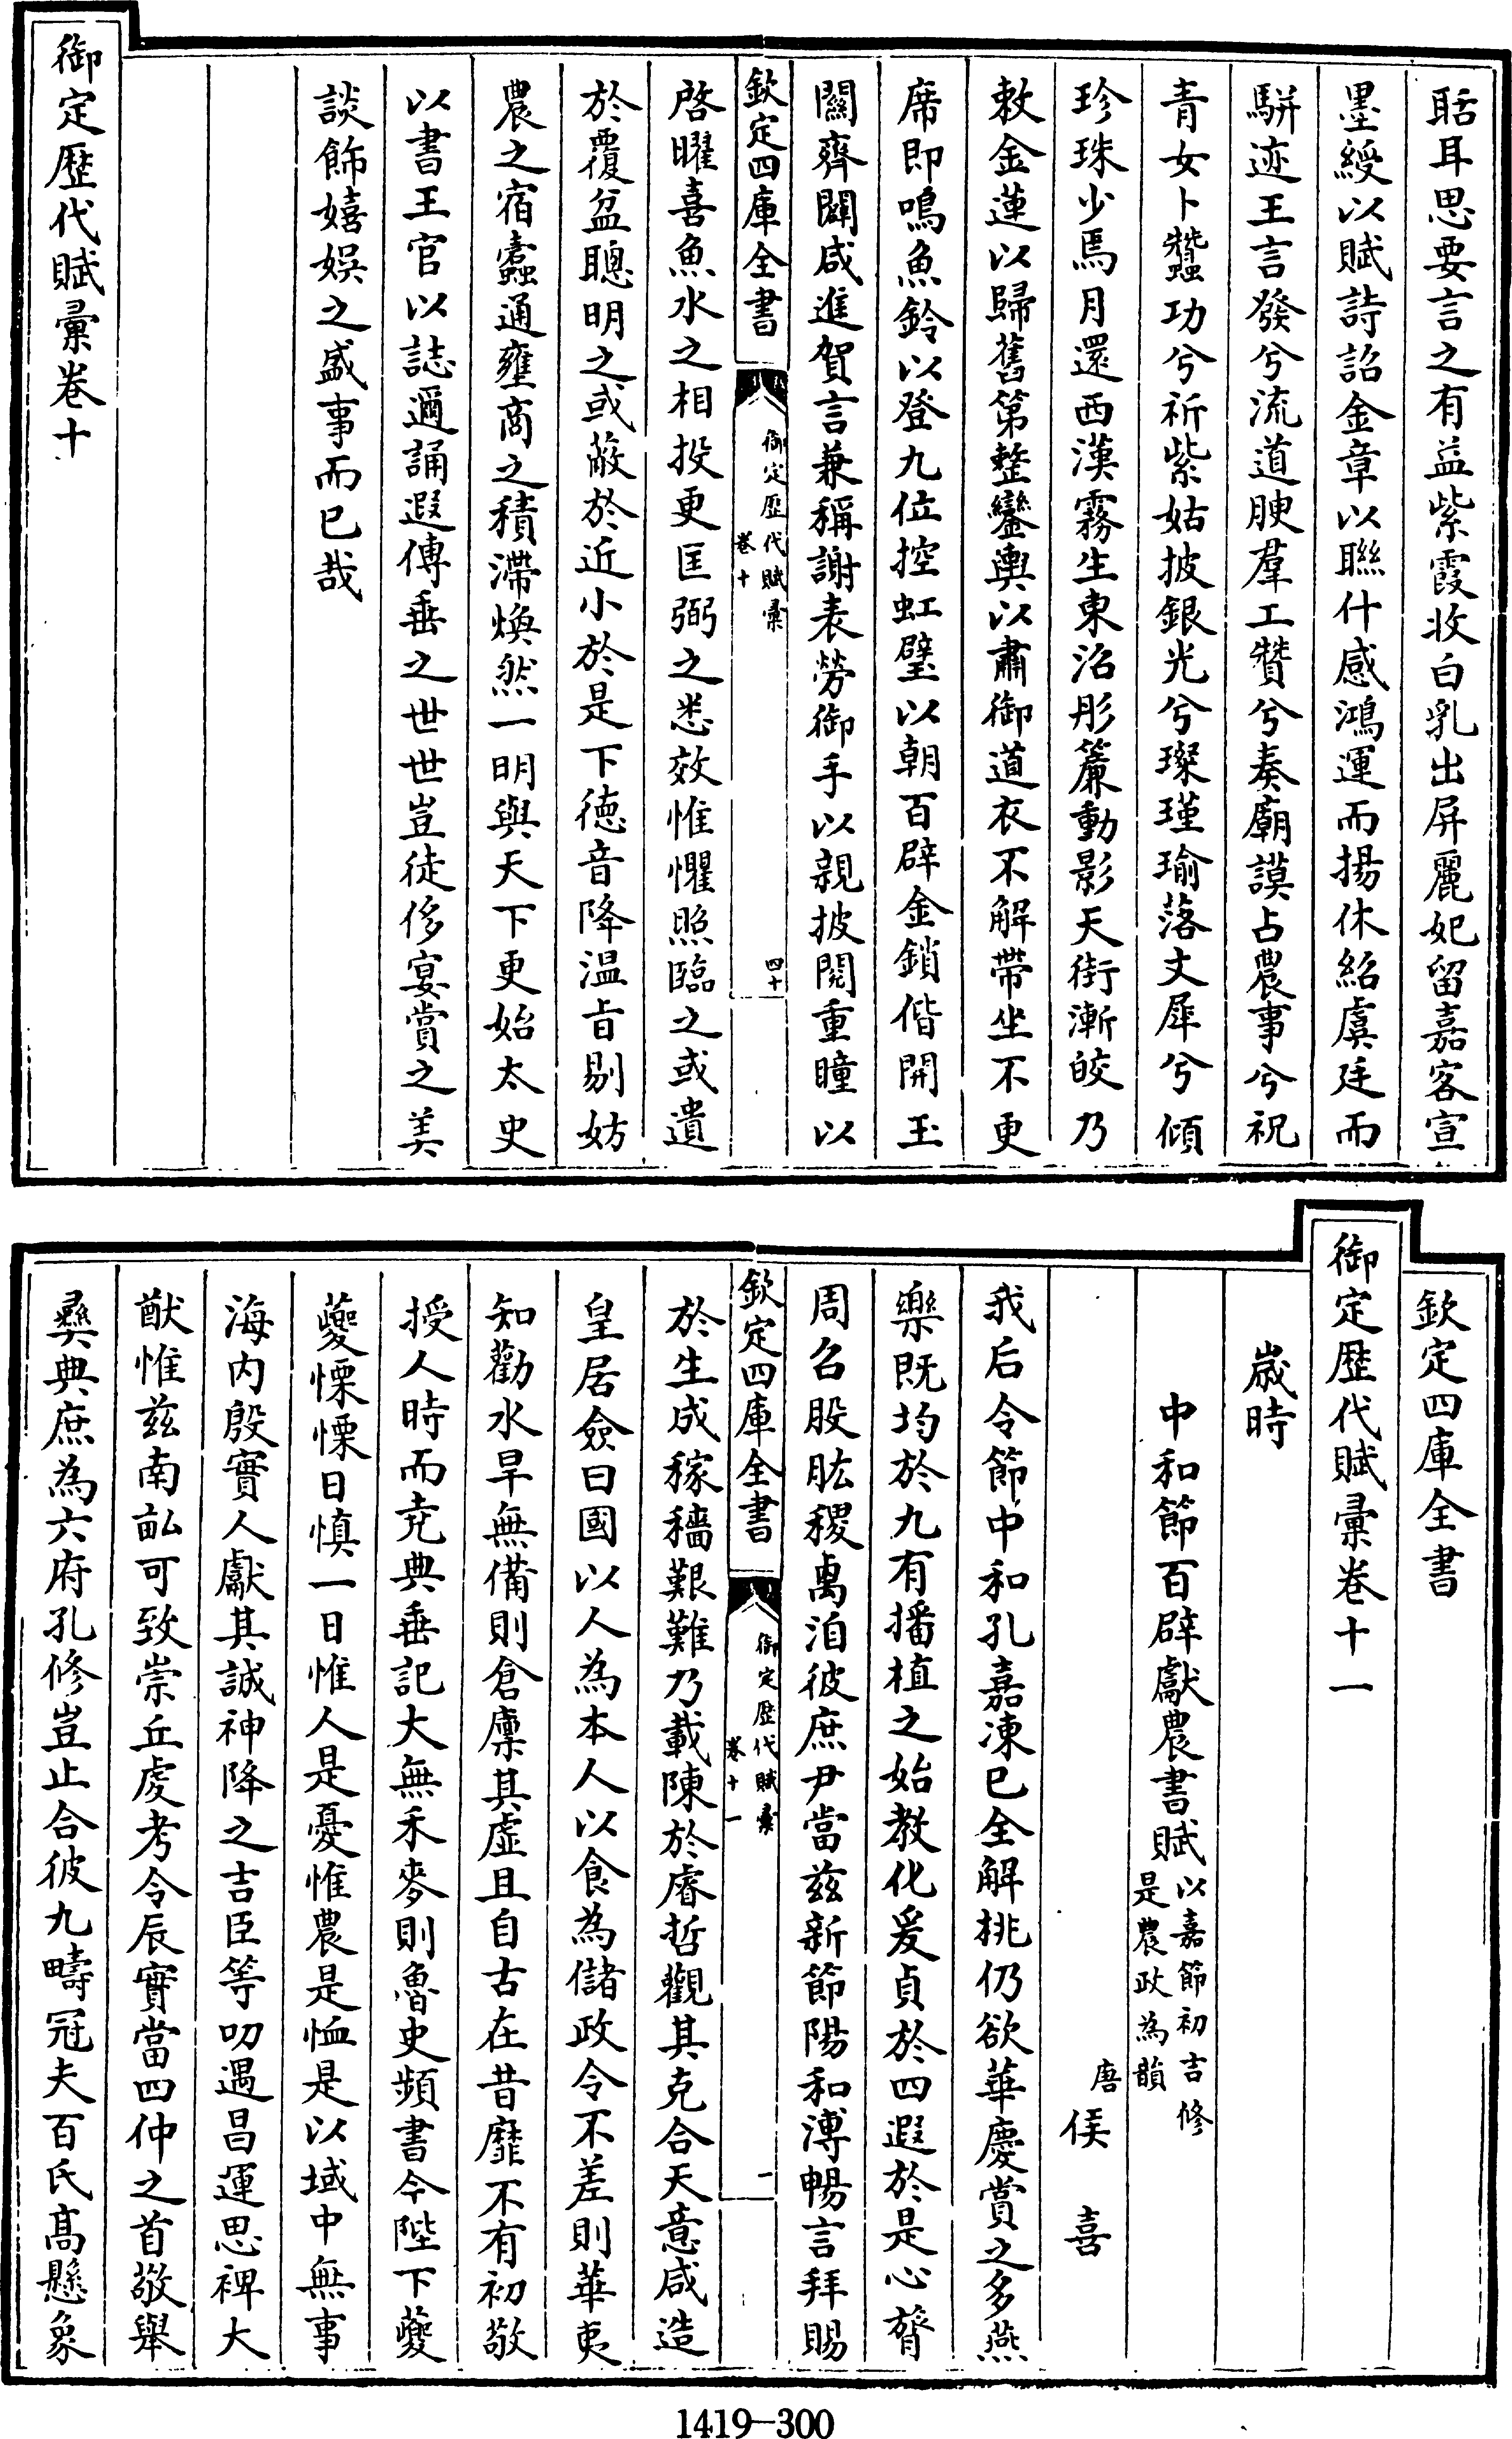 聒耳思要言之有益紫霞收白乳出屏麗妃留嘉客宣
墨綬以賦詩詔金章以聯什感鴻運而揚休紹虞廷而
駢迹王言發兮流道腴羣工贊兮奏廟謨占農事兮祝
青女卜蠶功兮祈紫姑披銀光兮璨瑾瑜落文犀兮傾
珍珠少焉月還西漢霧生東沼彤簾動影天街漸皎乃
敕金蓮以歸舊第整鑾輿以肅御道衣不解帶坐不更
席即鳴魚鈴以登九位控虹璧以朝百辟金鎖偕開玉
關齊闢咸進賀言兼稱謝表勞御手以親披閱重瞳以
欽定四庫全書
御定歷代賦彙
卷十
四十
啓曜喜魚水之相投更匡弼之悉效惟懼照臨之或遺
於覆盆聰明之或蔽於近小於是下德音降温旨剔妨
農之宿蠹通壅商之積滯煥然一明與天下更始太史
以書王官以誌邇誦遐傳垂之世世豈徒侈宴賞之美
談飾嬉娛之盛事而已哉
御定歷代賦彙卷十
欽定四庫全書
御定歷代賦彙卷十一
歲時
中和節百辟獻農書賦以嘉節初吉修
是農政為韻
唐 侯喜
我后令節中和孔嘉凍已全解桃仍欲華慶賞之多燕
樂既均於九有播植之始教化爰貞於四遐於是心膂
周召股肱稷禼洎彼庶尹當兹新節陽和溥暢言拜賜
欽定四庫全書
御定歷代賦彙
卷十一
一
於生成稼穡艱難乃載陳於睿哲觀其克合天意咸造
皇居僉曰國以人為本人以食為儲政令不差則華夷
知勸水旱無備則倉廩其虛且自古在昔靡不有初敬
授人時而堯典垂記大無禾麥則魯史頻書今陛下夔
夔慄慄日慎一日惟人是憂惟農是恤是以域中無事
海内殷實人獻其誠神降之吉臣等叨遇昌運思裨大
猷惟兹南畝可致崇丘虔考令辰實當四仲之首敬舉
彝典庶為六府孔修豈止合彼九疇冠夫百氏髙懸象
1419-300